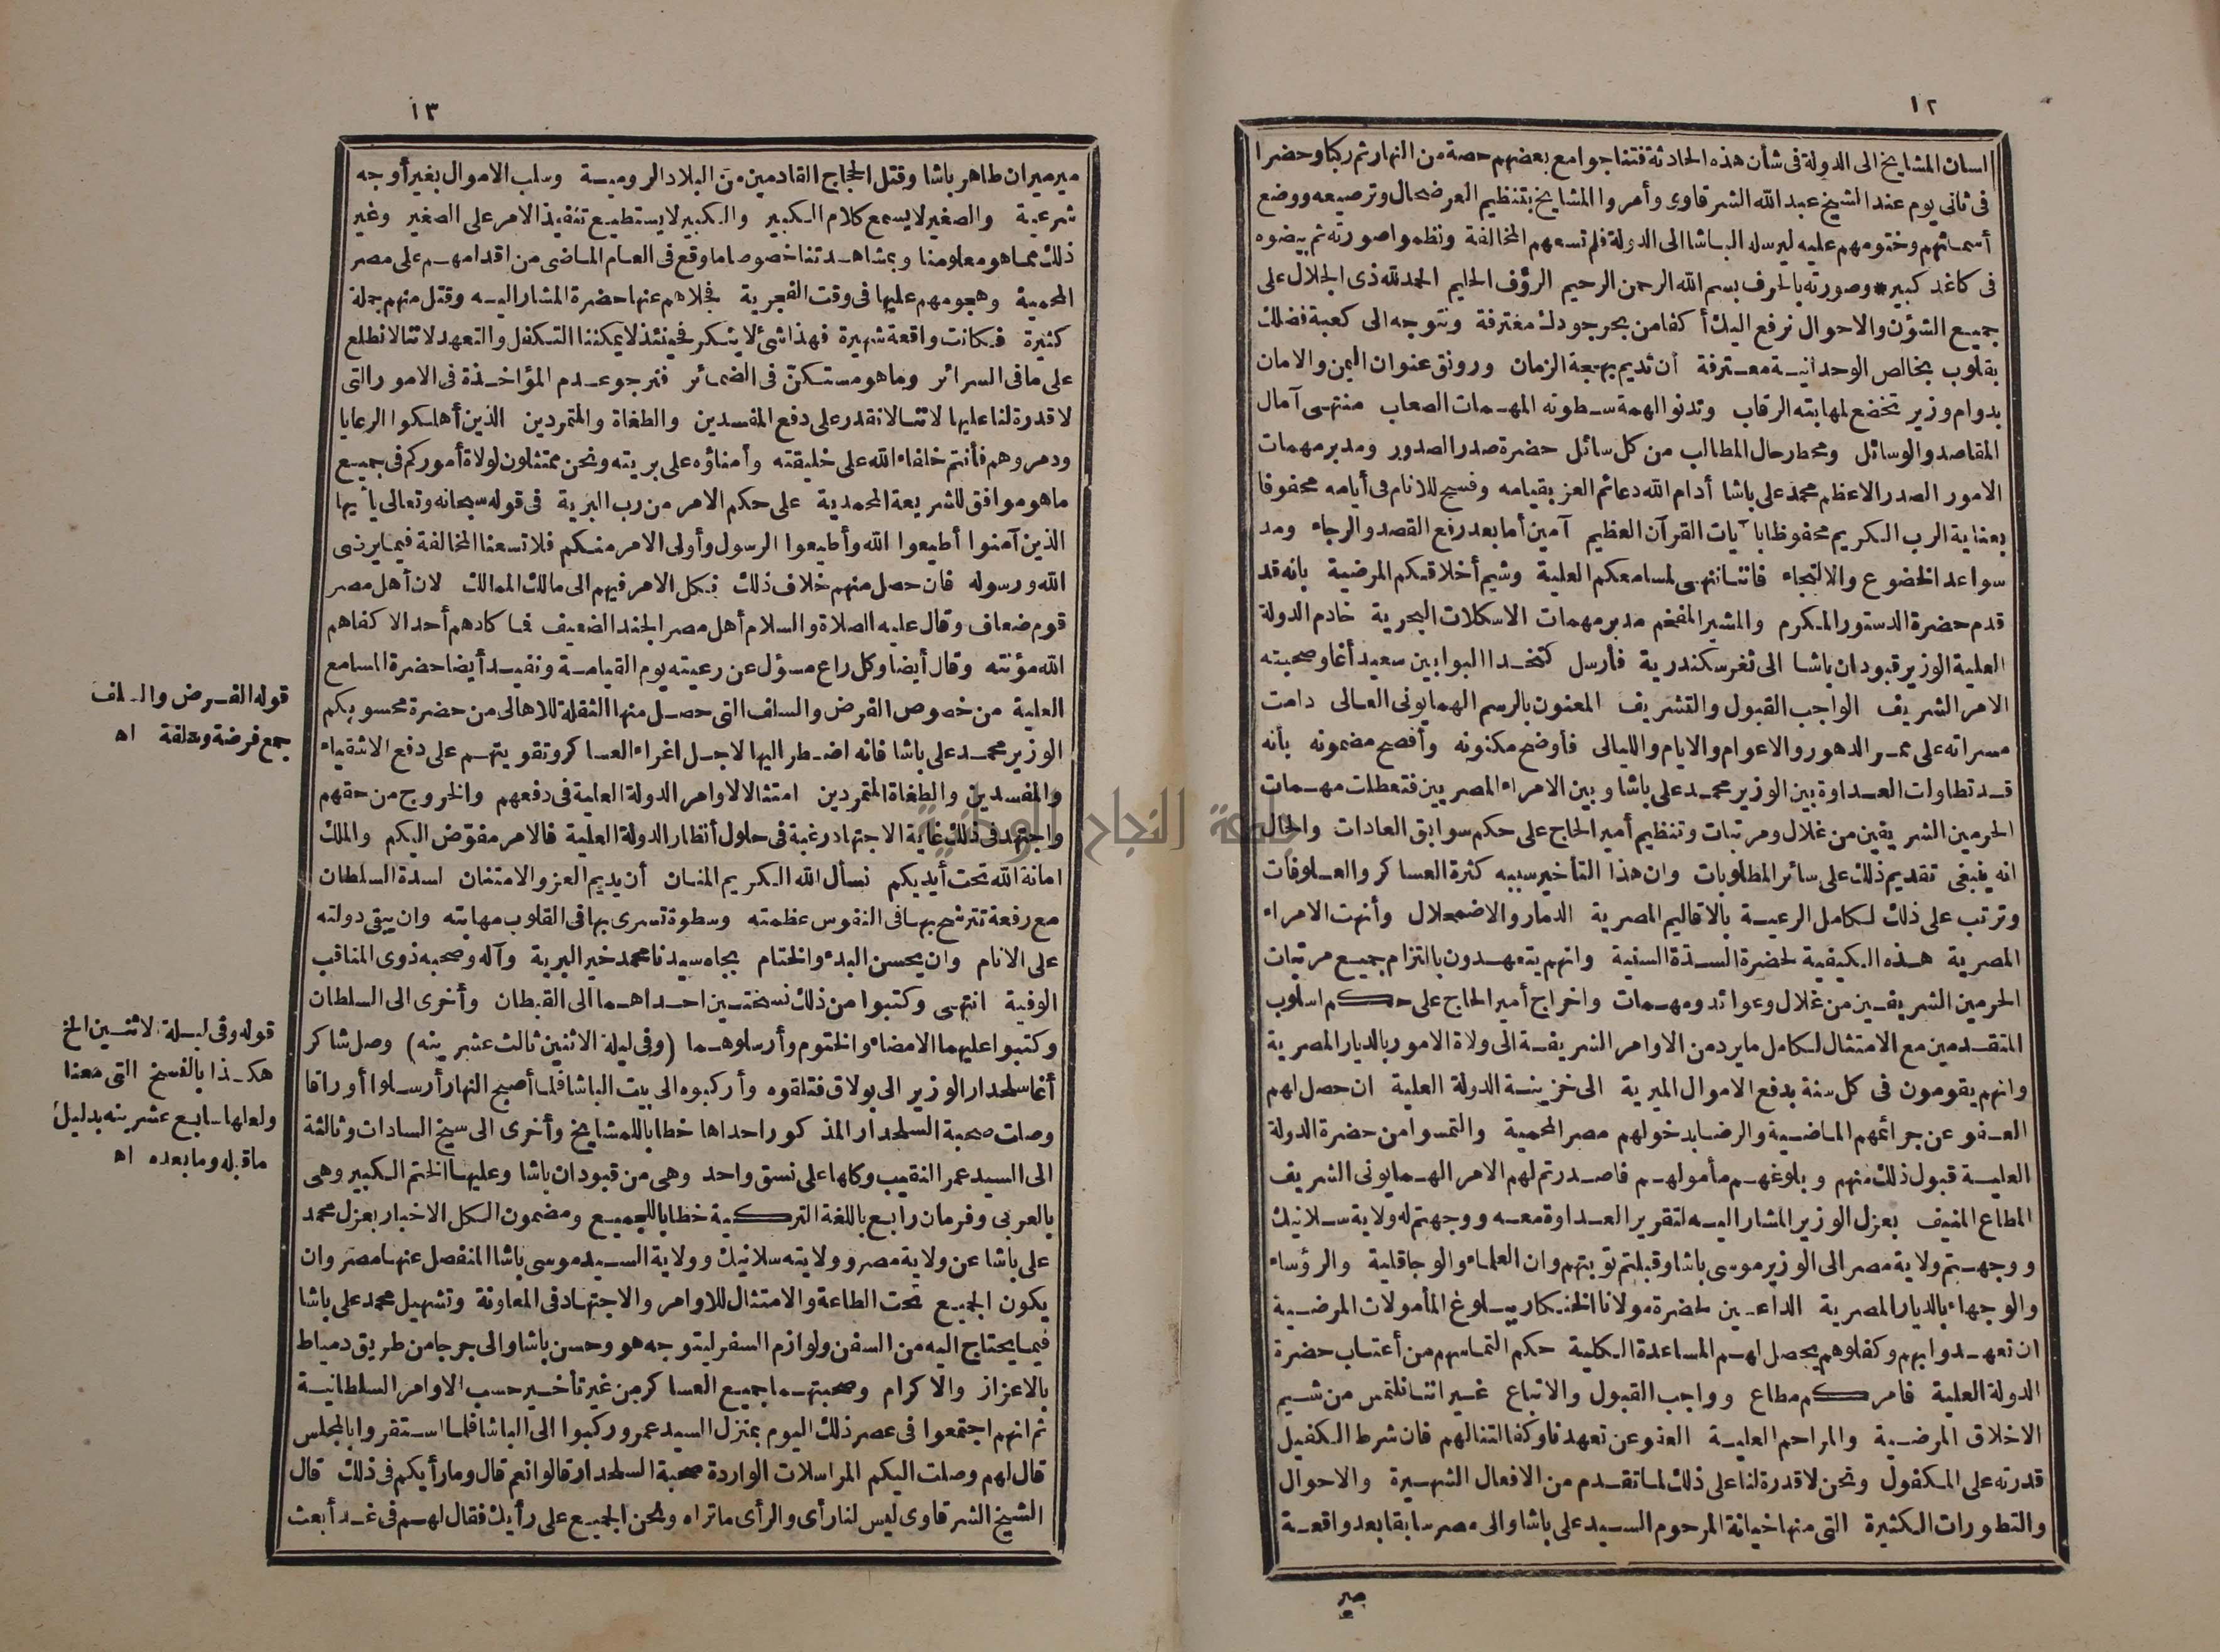 ١٢
لسان المشايخ الى الدولة فى شأن هذه الحادثة فتناجوا مع بعضهم حصة من النهار ثم ركبا وحضرا
فى ثانى يوم عند الشيخ عبد الله الشرقاوى وأمروا المشايخ بتنظيم العرضحال وترصيعه ووضع
أسمائهم وختومهم عليه ليرسله الباشا الى الدولة فلم تسعهم المخالفة ونظموا صورته ثم بيضوه
فى كاغد كبير * وصورته بالحرف بسم الله الرحمن الرحيم الرؤف الحليم الحمد لله ذى الجلال على
جميع الشؤن والاحوال نرفع اليك أكفا من بحر جودك مغترفة ونتوجه الى كعبة فضلك
بقلوب بخالص الوحدانية معترفة أن تديم بهجة الزمان ورونق عنوان اليمن والامان
بدوام وزير تخضع لمهابته الرقاب وتدنو الهمة سطوته المهمات الصعاب منتهى آمال
المقاصد والوسائل ومحط رحال المطالب من كل سائل حضرة صدر الصدور ومدبر مهمات
الامور الصدر الاعظم محمد على باشا أدام الله دعائم العز بقيامه وفسح للانام فى أيامه محفوفا
بعناية الرب الكريم محفوظا بآيات القرآن العظيم آمين أما بعد رفع القصد والرجاء ومد
سواعد الخضوع والالتجاء فاننا ننهى لمسامعكم العلية وشيم أخلاقكم المرضية بانه قد
قدم حضرة الدستور المكرم والمشير المفخم مدبر مهمات الاسكلات البحرية خادم الدولة
العلية الوزير قبودان باشا الى ثغر سكندرية فأرسل كتخدا البوابين سعيد أغا وصحبته
الامر الشريف الواجب القبول والتشريف المعنون بالرسم الهمايونى العالى دامت
مسراته على ممر الدهور والاعوام والايام والليالى فأوضح مكنونه وأفصح مضمونه بأنه
قد تطاولت العداوة بين الوزير محمد على باشا وبين الامراء المصريين فتعطلت مهمات
الحرمين الشريفين من غلال ومرتبات وتنظيم أمير الحاج على حكم سوابق العادات والحال
انه ينبغى تقديم ذلك على سائر المطلوبات وان هذا التأخير سببه كثرة العساكر والعلوفات
وترتب على ذلك لكامل الرعية بالاقاليم المصرية الدمار والاضمحلال وأنهت الامراء
المصرية هذه الكيفية لحضرة السدة السنية وانهم يتعهدون بالتزام جميع مرتبات
الحرمين الشريفين من غلال وعوائد ومهمات واخراج أمير الحاج على حكم اسلوب
المتقدمين مع الامتثال لكامل ما يرد من الاوامر الشريفة الى ولاة الامور بالديار المصرية
وانهم يقومون فى كل سنة بدفع الاموال الميرية الى خزينة الدولة العلية ان حصل لهم
العفو عن جرائمهم الماضية والرضا بدخولهم مصر المحمية والتمسوا من حضرة الدولة
العلية قبول ذلك منهم وبلوغهم مأمولهم فاصدرتم لهم الامر الهمايونى الشريف
المطاع المنيف بعزل الوزير المشار اليه لتقرير العداوة معه ووجهتم له ولاية سلانيك
ووجهتم ولاية مصر الى الوزير موسى باشا وقبلتم توبتهم وان العلماء والوجاقلية والرؤساء
والوجهاء بالديار المصرية الداعين لحضرة مولانا الخنكار ببلوغ المأمولات المرضية
ان تعهدوا بهم وكفلوهم يحصل لهم المساعدة الكلية حكم التماسهم من أعتاب حضرة
الدولة العلية فامركم مطاع وواجب القبول والاتباع غير اننا نلتمس من شيم
الاخلاق المرضية والمراحم العلية العفو عن تعهدنا وكفالتنا لهم فان شرط الكفيل
قدرته على المكفول ونحن لا قدرة لنا على ذلك لما تقدم من الافعال الشهيرة والاحوال
والتطورات الكثيرة التى منها خيانة المرحوم السيد على باشا والى مصر سابقا بعد واقعة
مير
١٣
ميرميران طاهر باشا وقتل الحجاج القادمين من البلاد الرومية وسلب الاموال بغير أوجه
شرعية والصغير لا يسمع كلام الكبير والكبير لا يستطيع تنفيذ الامر على الصغير وغير
ذلك مما هو معلومنا وبمشاهدتنا خصوصا ما وقع فى العام الماضى من اقدامهم على مصر
المحمية وهجومهم عليها فى وقت الفجرية فجلاهم عنها حضرة المشار اليه وقتل منهم جملة
كثيرة فكانت واقعة شهيرة فهذا شئ لا ينكر فحينئذ لا يمكننا التكفل والتعهد لاننا لا نطلع
على ما فى السرائر وما هو مستكن فى الضمائر فنرجو عدم المؤاخذة فى الامور التى
لا قدرة لنا عليها لاننا لا نقدر على دفع المفسدين والطغاة والمتمردين الذين أهلكوا الرعايا
ودمروهم فأنتم خلفاء الله على خليقته وأمناؤه على بريته ونحن ممتثلون لولاة أموركم فى جميع
ما هو موافق للشريعة المحمدية على حكم الامر من رب البرية فى قوله سبحانه وتعالى يا أيها
الذين آمنوا أطيعوا الله وأطيعوا الرسول وأولى الامر منكم فلا تسعنا المخالفة فيما يرضى
الله ورسوله فان حصل منهم خلاف ذلك نكل الامر فيهم الى مالك الممالك لان أهل مصر
قوم ضعاف وقال عليه الصلاة والسلام أهل مصر الجند الضعيف فما كادهم أحد الا كفاهم
الله مؤنته وقال أيضا وكل راع مسؤل عن رعيته يوم القيامة ونفيد أيضا حضرة المسامع
العلية من خصوص القرض والسلف التى حصل منها الثقلة للاهالى من حضرة محسوبكم
الوزير محمد على باشا فانه اضطر اليها لاجل اغراء العساكر وتقويتهم على دفع الاشقياء
والمفسدين والطغاة المتمردين امتثالا لاوامر الدولة العلية فى دفعهم والخروج من حقهم
واجتهد فى ذلك غاية الاجتهاد رغبة فى حلول أنظار الدولة العلية فالامر مفوض اليكم والملك
امانة الله تحت أيديكم نسأل الله الكريم المنان أن يديم العز والامتنان لسدة السلطان
مع رفعة تترشح بها فى النفوس عظمته وسطوة تسرى بها فى القلوب مهابته وان يبقى دولته
على الانام وان يحسن البدء والختام بجاه سيدنا محمد خير البرية وآله وصحبه ذوى المناقب
الوفية انتهى وكتبوا من ذلك نسختين احداهما الى القبطان وأخرى الى السلطان
وكتبوا عليهما الامضاء والختوم وأرسلوهما (وفى ليلة الاثنين ثالث عشرينه) وصل شاكر
أغا سلحدار الوزير الى بولاق فتلقوه وأركبوه الى بيت الباشا فلما أصبح النهار أرسلوا أوراقا
وصلت صحبة السلحدار المذكور احداها خطابا للمشايخ وأخرى الى شيخ السادات وثالثة
الى السيد عمر النقيب وكلها على نسق واحد وهى من قبودان باشا وعليها الختم الكبير وهى
بالعربى وفرمان رابع باللغة التركية خطابا للجميع ومضمون الكل الاخبار بعزل محمد
على باشا عن ولاية مصر وولايته سلانيك وولاية السيد موسى باشا المنفصل عنها مصر وان
يكون الجميع تحت الطاعة والامتثال للاوامر والاجتهاد فى المعاونة وتشهيل محمد على باشا
فيما يحتاج اليه من السفن ولوازم السفر ليتوجه هو وحسن باشا والى جرجا من طريق دمياط
بالاعزاز والاكرام وصحبتهما جميع العساكر من غير تأخير حسب الاوامر السلطانية
ثم انهم اجتمعوا فى عصر ذلك اليوم بمنزل السيد عمر وركبوا الى الباشا فلما استقروا بالمجلس
قال لهم وصلت اليكم المراسلات الواردة صحبة السلحدار قالوا نعم قال وما رأيكم فى ذلك قال
الشيخ الشرقاوى ليس لنا رأى والرأى ما تراه ونحن الجميع على رأيك فقال لهم فى غد أبعث
قوله الفرض والسلف
جمع فرضة وسلفة اه
قوله وفى ليلة الاثنين الخ
هكذا بالنسخ التى معنا
ولعلها سابع عشرينه بدليل
ما قبله وما بعده اه
جامعة النجاح الوطنية